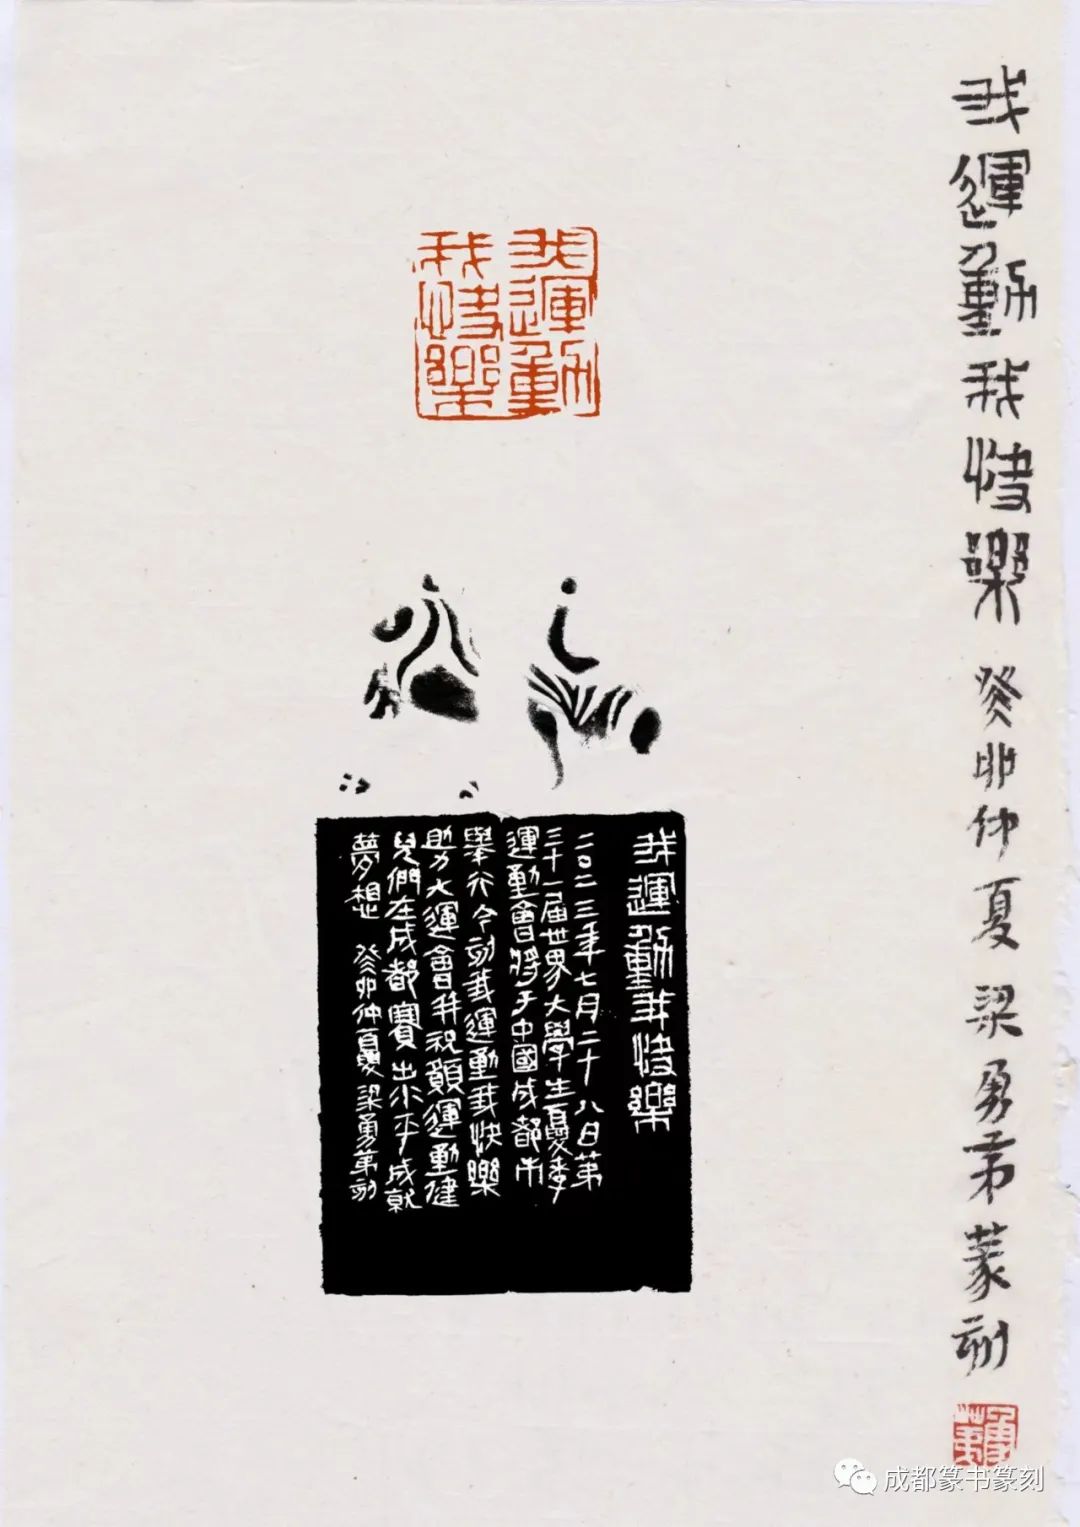 我運動我快樂 癸卯仲夏 梁勇弟篆刻
勇弟
我運動
我快樂
我運動我快樂
二〇二三年七月二十八日第
三十一届世界大學生夏季
運動會將于中國成都市
舉行今刻我運動我快樂
助力大運會并祝願運動健
兒們在成都賽出水平成就
夢想 癸卯仲夏梁勇弟刻
成都篆书篆刻